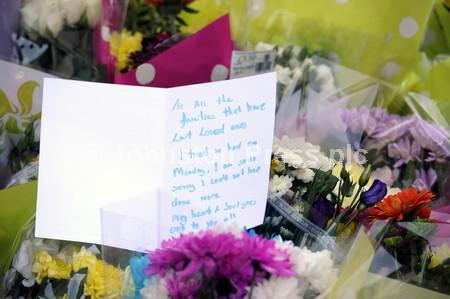 To All the
families that have
Lost Loved ones
I tried so hard on
Monday, I am so so
sorry I could not have
done more
my heart & soul goes
out to you all
Johnston Press plc